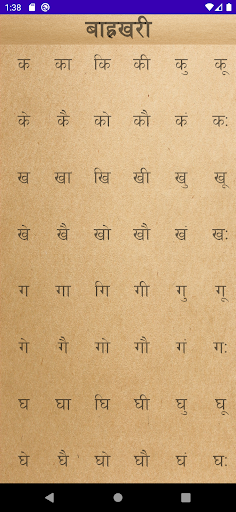 1:38
बाह्रखरी
क का कि की कु कू
के कै को कौ कं कः
ख खा खि खी खु खू
खे खै खो खौ खं खः
ग गा गि गी गु गू
गे गै गो गौ गं गः
घ घा घि घी घु घू
घे घै घो घौ घं घः